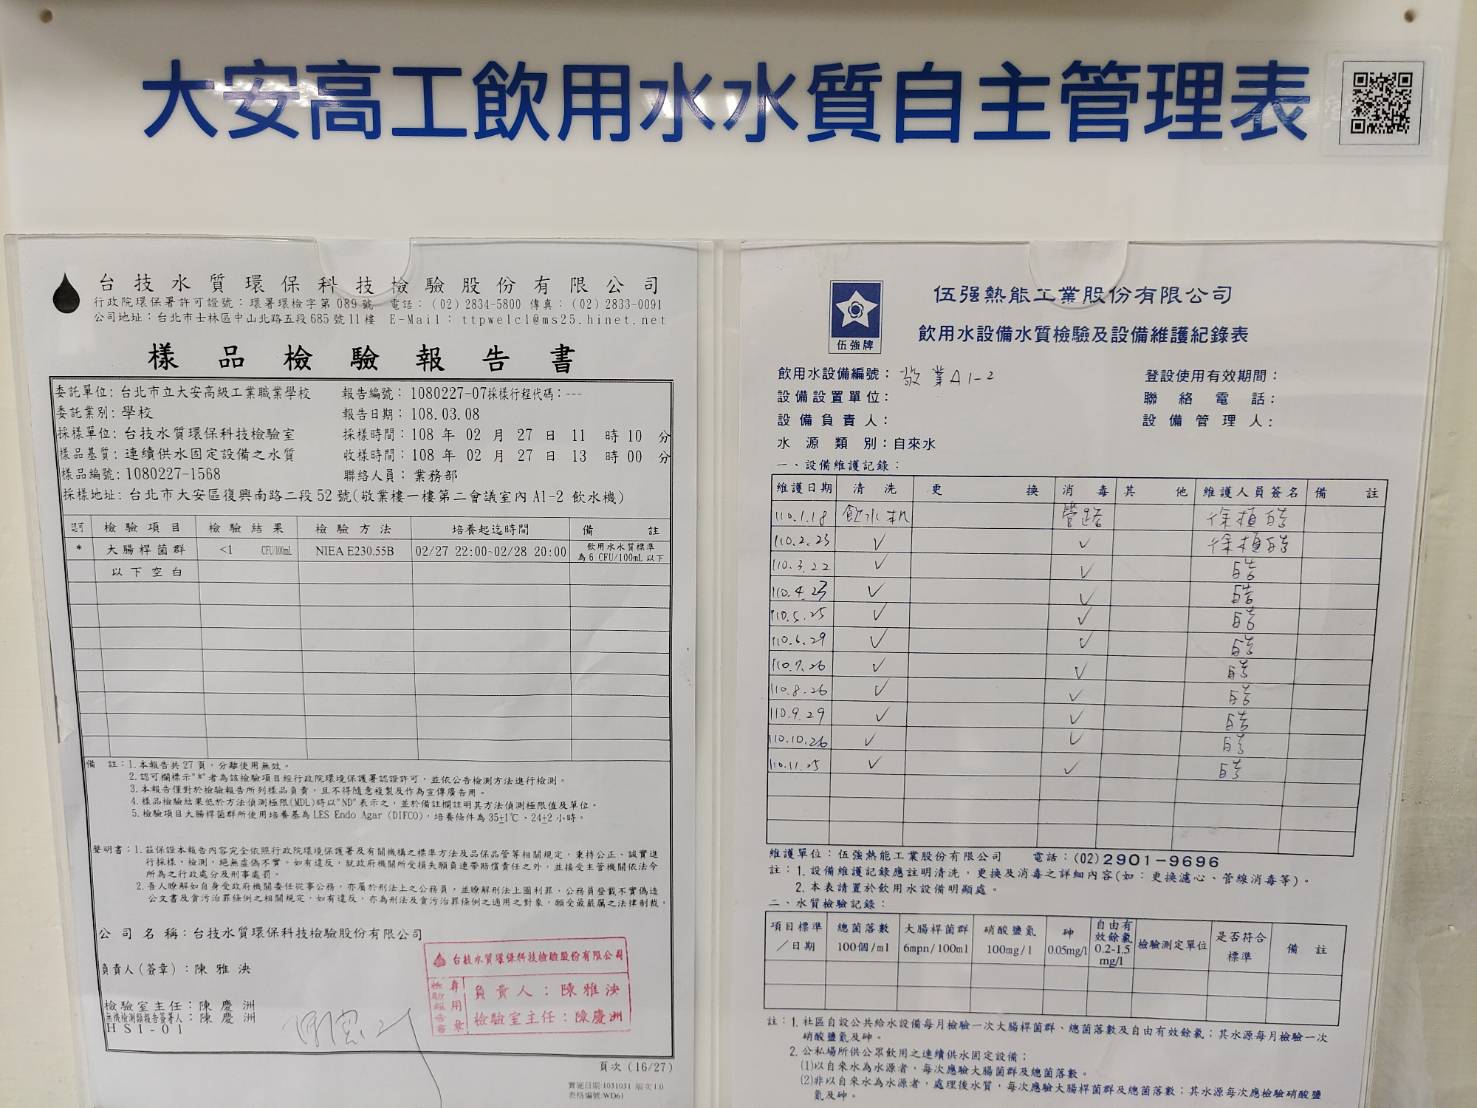 大安高工飲用水水質自主管理表
台技水質環保科技檢驗股份有限公司
行政院環保署許可證號：環署環檢字第089號 電話：(02)2834-5800 傳真：(02)2833-0091
公司地址：台北市士林區中山北路五段685號11樓 E-Mail：ttpwelcl@ms25.hinet.net
樣品檢驗報告書
委託單位：台北市立大安高級工業職業學校 報告編號：1080227-07採樣行程代碼：---
委託業別：學校 報告日期：108.03.08
採樣單位：台技水質環保科技檢驗室 採樣時間：108 年 02 月 27 日 11 時 10 分
樣品基質：連續供水固定設備之水質 收樣時間：108 年 02 月 27 日 13 時 00 分
樣品編號：1080227-1568 聯絡人員：業務部
採樣地址：台北市大安區復興南路二段52號(敬業樓一樓第二會議室內A1-2飲水機)
認可 檢驗項目 檢驗結果 檢驗方法 培養起迄時間 備註
* 大腸桿菌群 <1 CFU/100mL NIEA E230.55B 02/27 22:00~02/28 20:00 飲用水水質標準為6 CFU/100mL以下
以下空白
備 註：1.本報告共27頁，分離使用無效。
2.認可欄標示"*"者為該檢驗項目經行政院環境保護署認證許可，並依公告檢測方法進行檢測。
3.本報告僅對於檢驗報告所列樣品負責，且不得隨意複製及作為宣傳廣告用。
4.樣品檢驗結果低於方法偵測極限(MDL)時以"ND"表示之，並於備註欄註明其方法偵測極限值及單位。
5.檢驗項目大腸桿菌群所使用培養基為LES Endo Agar (DIFCO)，培養條件為35±1℃、24±2小時。
聲明書：1.茲保證本報告內容完全依照行政院環境保護署及有關機構之標準方法及品保品管等相關規定，秉持公正、誠實進
行採樣、檢測，絕無虛偽不實。如有違反，就政府機關所受損失願負連帶賠償責任之外，並接受主管機關依法令
所為之行政處分及刑事處罰。
2.吾人瞭解如自身受政府機關委任從事公務，亦屬於刑法上之公務員，並瞭解刑法上圖利罪、公務員登載不實偽造
公文書及貪污治罪條例之相關規定，如有違反，亦為刑法及貪污治罪條例之適用之對象，願受最嚴厲之法律制裁。
公司名稱：台技水質環保科技檢驗股份有限公司
負責人(簽章)：陳雅泱
檢驗室主任：陳慶洲
無機檢測類報告簽署人：陳慶洲
HSI-01
台技水質環保科技檢驗股份有限公司
檢驗報告專用章
負責人：陳雅泱
檢驗室主任：陳慶洲
頁次 (16/27)
實施日期:1031031 版次1.0
表格編號:WD61
伍強牌
伍强熱能工業股份有限公司
飲用水設備水質檢驗及設備維護紀錄表
飲用水設備編號：敬業A1-2 登設使用有效期間：
設備設置單位： 聯絡電話：
設備負責人： 設備管理人：
水源類別：自來水
一、設備維護記錄：
維護日期 清洗 更換 消毒 其他 維護人員簽名 備註
110.1.18 飲水机 管路
110.2.23 ✓ ✓
110.3.22 ✓ ✓
110.4.23 ✓ ✓
110.5.25 ✓ ✓
110.6.29 ✓ ✓
110.7.26 ✓ ✓
110.8.26 ✓ ✓
110.9.29 ✓ ✓
110.10.26 ✓ ✓
110.11.25 ✓ ✓
維護單位：伍强熱能工業股份有限公司 電話：(02)2901-9696
註：1.設備維護記錄應註明清洗，更換及消毒之詳細內容(如：更換濾心、管線消毒等)。
2.本表請置於飲用水設備明顯處。
二、水質檢驗記錄：
項目標準／日期 總菌落數100個/ml 大腸桿菌群6mpn/100ml 硝酸鹽氮100mg/l 砷0.05mg/l 自由有效餘氯0.2-1.5mg/l 檢驗測定單位 是否符合標準 備註
註：1.社區自設公共給水設備每月檢驗一次大腸桿菌群、總菌落數及自由有效餘氯；其水源每月檢驗一次
硝酸鹽氮及砷。
2.公私場所供公眾飲用之連續供水固定設備：
(1)以自來水為水源者，每次應驗大腸菌群及總菌落數。
(2)非以自來水為水源者，處理後水質，每次應驗大腸桿菌群及總菌落數；其水源每次應檢驗硝酸鹽
氮及砷。